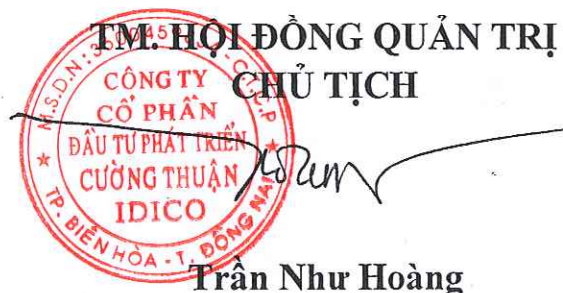 TM. HỘI ĐỒNG QUẢN TRỊ
CHỦ TỊCH
CÔNG TY
CỔ PHẦN
ĐẦU TƯ PHÁT TRIỂN
CƯỜNG THUẬN
IDICO
TP. BIÊN HÒA - T. ĐỒNG NAI
Trần Như Hoàng